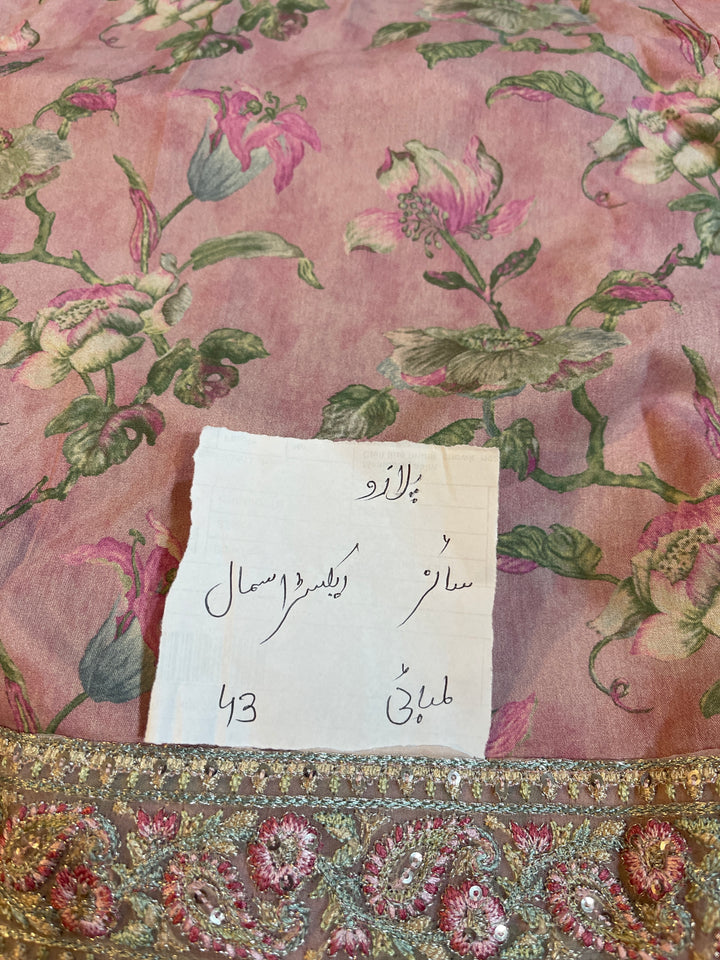 پلازو
سائز ایکسٹرا سمال
لمبائی 43